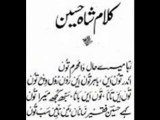 کلام شاہ حسین
ربا میرے حال دا محرم توں
اندر توں ہیں، باہر توں ہیں، روں روں وچ توں
توں ہیں تانا، توں ہیں بانا، سبھو کجھ میرا توں
کہے حسین فقیر نمانا، میں ناہیں سبھ توں